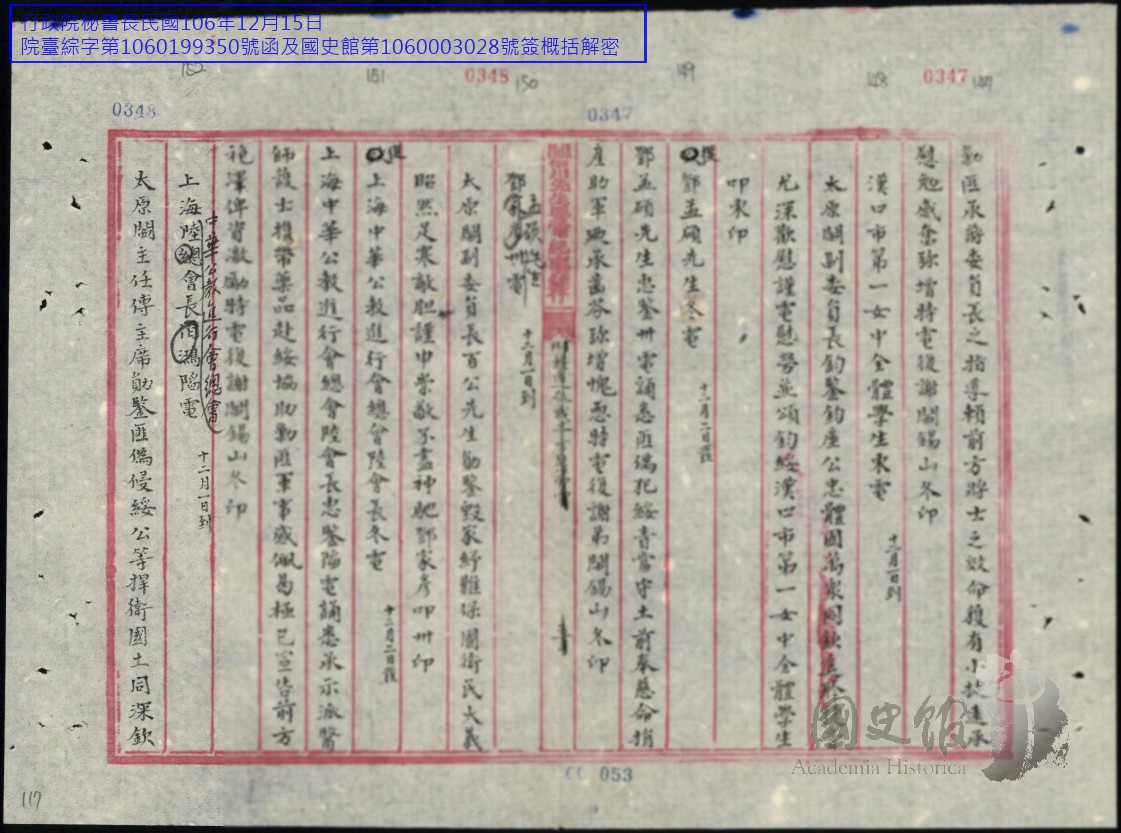 行政院秘書長民國106年12月15日
院臺綜字第1060199350號函及國史館第1060003028號簽概括解密
152
151
0348
150
149
148
0347
147
0348
0347
勦匪承蔣委員長之指導賴前方將士之效命獲有小捷遠承
慰勉感奮弥增特電復謝閻錫山冬印
漢口市第一女中全體學生東電 十二月一日到
太原閻副委員長鈞鑒鈞座公忠體國萬衆同欽
尤深歡慰謹電慰勞並頌鈞綏漢口市第一女中全體學生
叩東印
復鄧孟碩先生冬電 十二月二日發
鄧孟碩先生忠鑒卅電誦悉匪偽犯綏責當守土前奉慈命捐
產助軍承齒芬弥增愧恧特電復謝弟閻錫山冬印
鄧家彥卅電 十二月一日到
太原閻副委員長百公先生勛鑒毀家紓難保國衛民大義
昭然足寒敵胆謹申崇敬不盡神馳鄧家彥叩卅印
復上海中華公教進行會總會陸會長冬電 十二月二日發
上海中華公教進行會總會陸會長忠鑒陷電誦悉承示派醫
師護士携帶藥品赴綏協助勦匪軍事感佩曷極已宣告前方
袍澤俾資激勵特電復謝閻錫山冬印
中華公教進行會總會
上海陸總會長伯鴻陷電 十二月一日到
太原閻主任傅主席勛鑒匪偽侵綏公等捍衛國土同深欽
國史館
Academia Historica
053
117